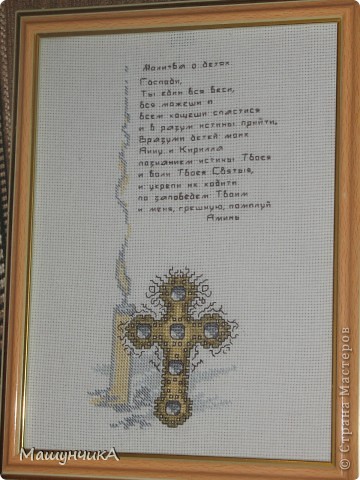 Молитва о детях
Господи,
Ты един вся веси,
вся можеши и
всем хощеши спастися
и в разум истины прийти,
Вразуми детей моих
Анну и Кирилла
познанием истины Твоея
и воли Твоея Святыя,
и укрепи их ходити
по заповедем Твоим
и меня, грешную, помилуй
Аминь
МашунчикА
© Страна Мастеров